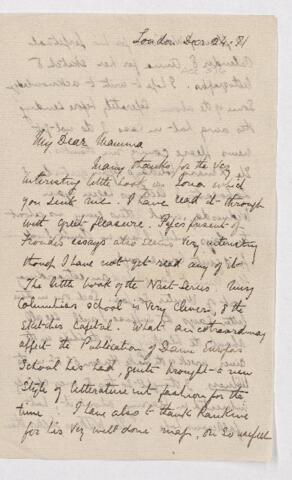 London Dec 24. 71
My Dear Mamma
Many thanks for the very
interesting little book on Iona which
you sent me. I have read it through
with great pleasure. Pope's present of
Froude's essays also seems very interesting
though I have not yet read any of it.
The little book of the Next Series Miss
Columbia's school is very clever, & the
sketches Capital. What an extraordinary
effect the Publication of Dame Europa's
School has had, quite brought a new
Style of litterature into fashion for the
time. I have also to thank Rankine
for his very well done map, on so useful